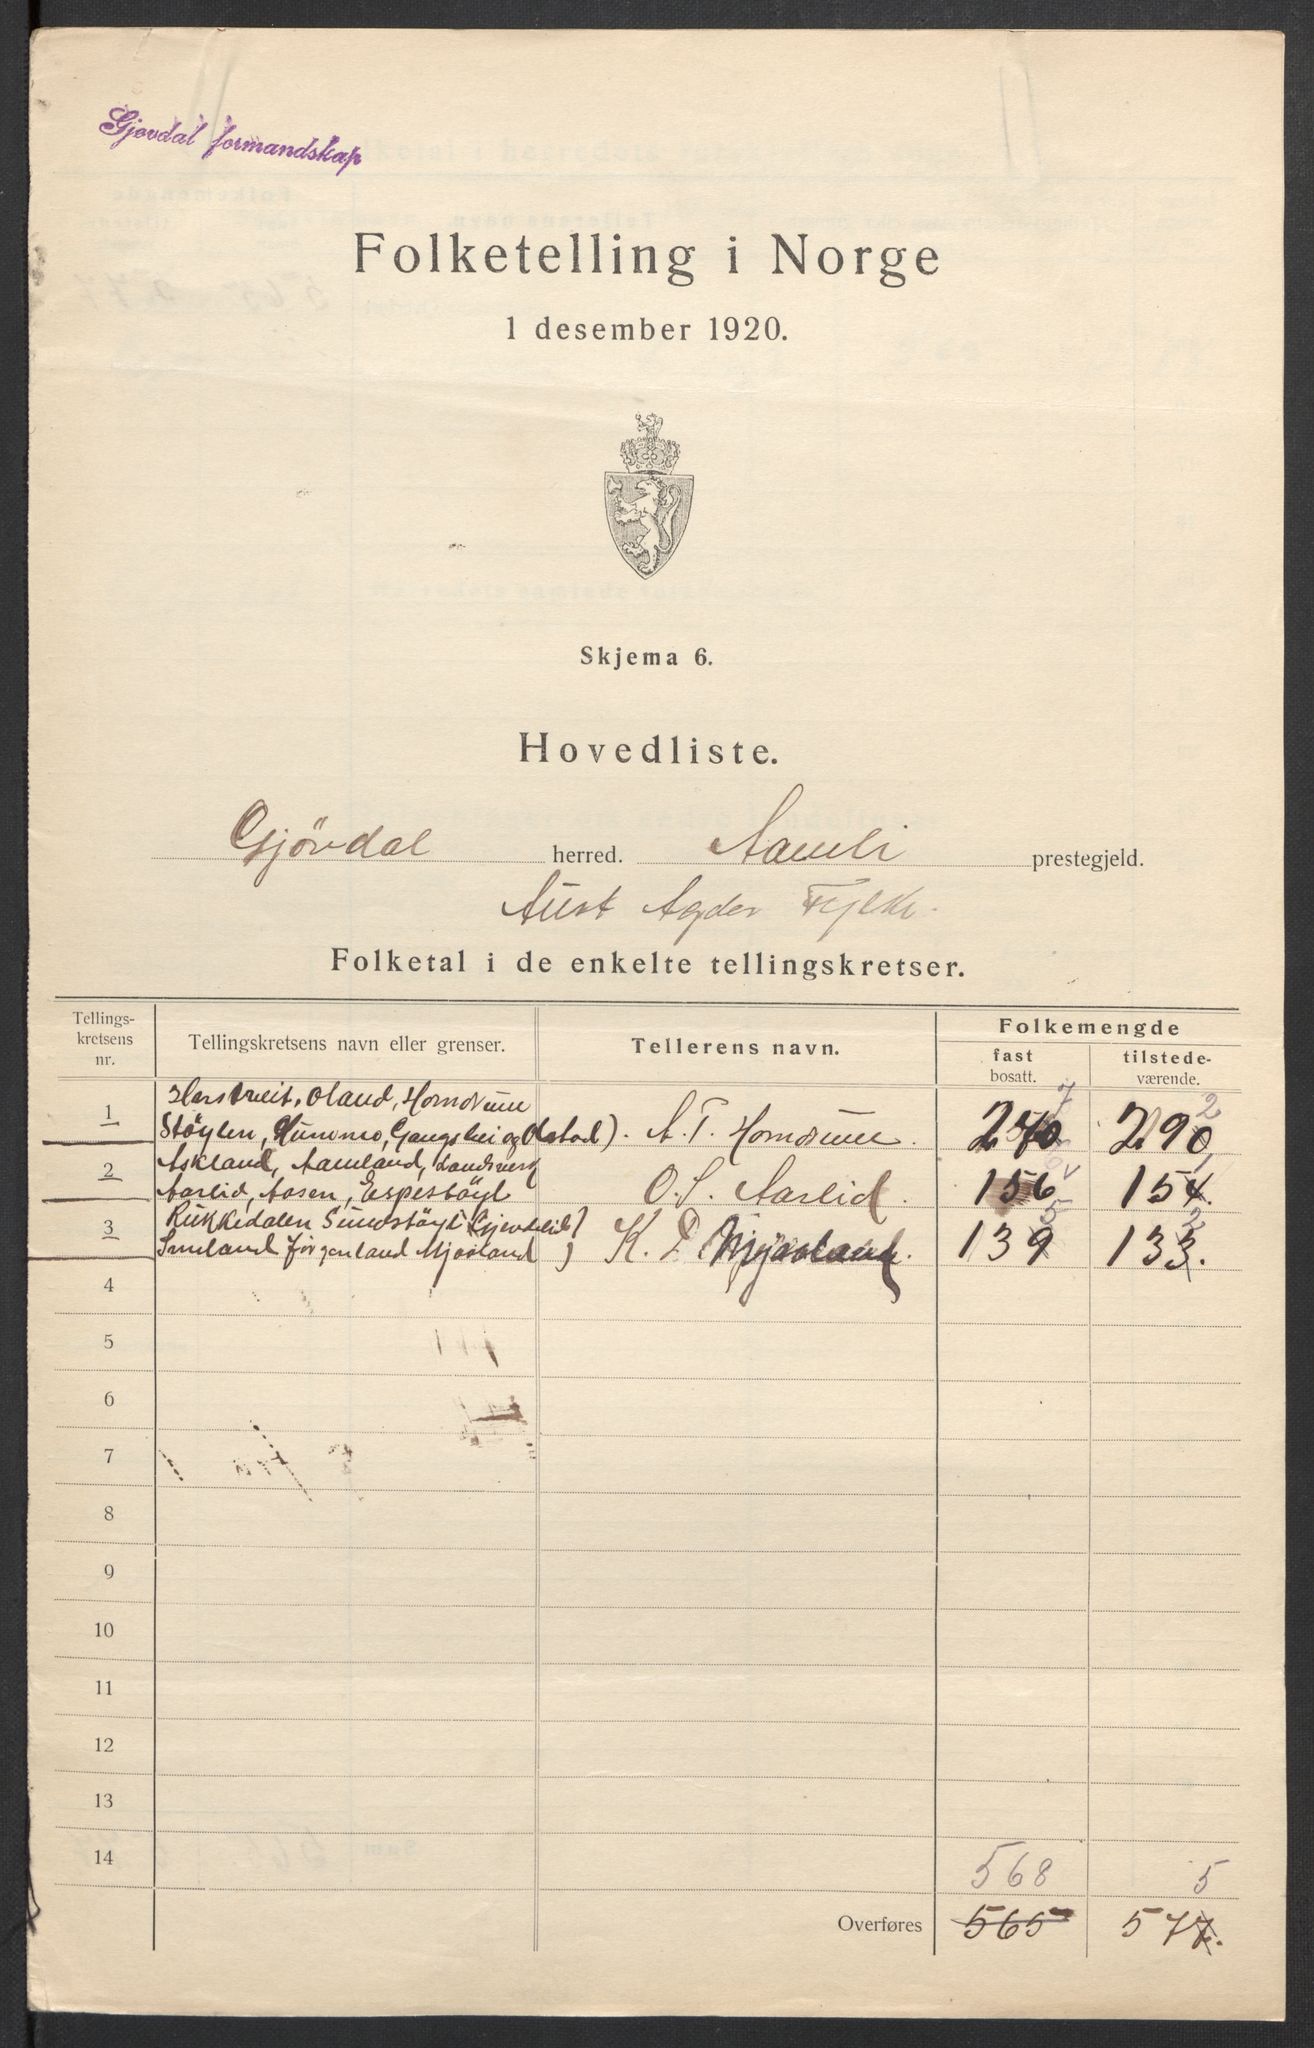 Gjevdal formandskap
Folketelling i Norge
1 desember 1920.
Skjema 6.
Hovedliste.
Gjövdal herred. Aamli prestegjeld.
Aust Agder Fylke.
Folketal i de enkelte tellingskretser.
Tellings-kretsens nr. Tellingskretsens navn eller grenser. Tellerens navn. Folkemengde
fast bosatt. tilstede-værende.
1 Oland, Homdrum
Stöylen, A. T. Homdrum. 270 290 2
2 Askland, Aamland, Landsverk
Aarlid, Aasen, Espestöyl O. S. Aarlid. 156 154.
3 Rukkedalen Sundstöyl
Smeland Jörgenland Mjovland K. Mjovland. 139 5 133. 2
4
5
6
7
8
9
10
11
12
13
14 568 5
Overføres 565 577.